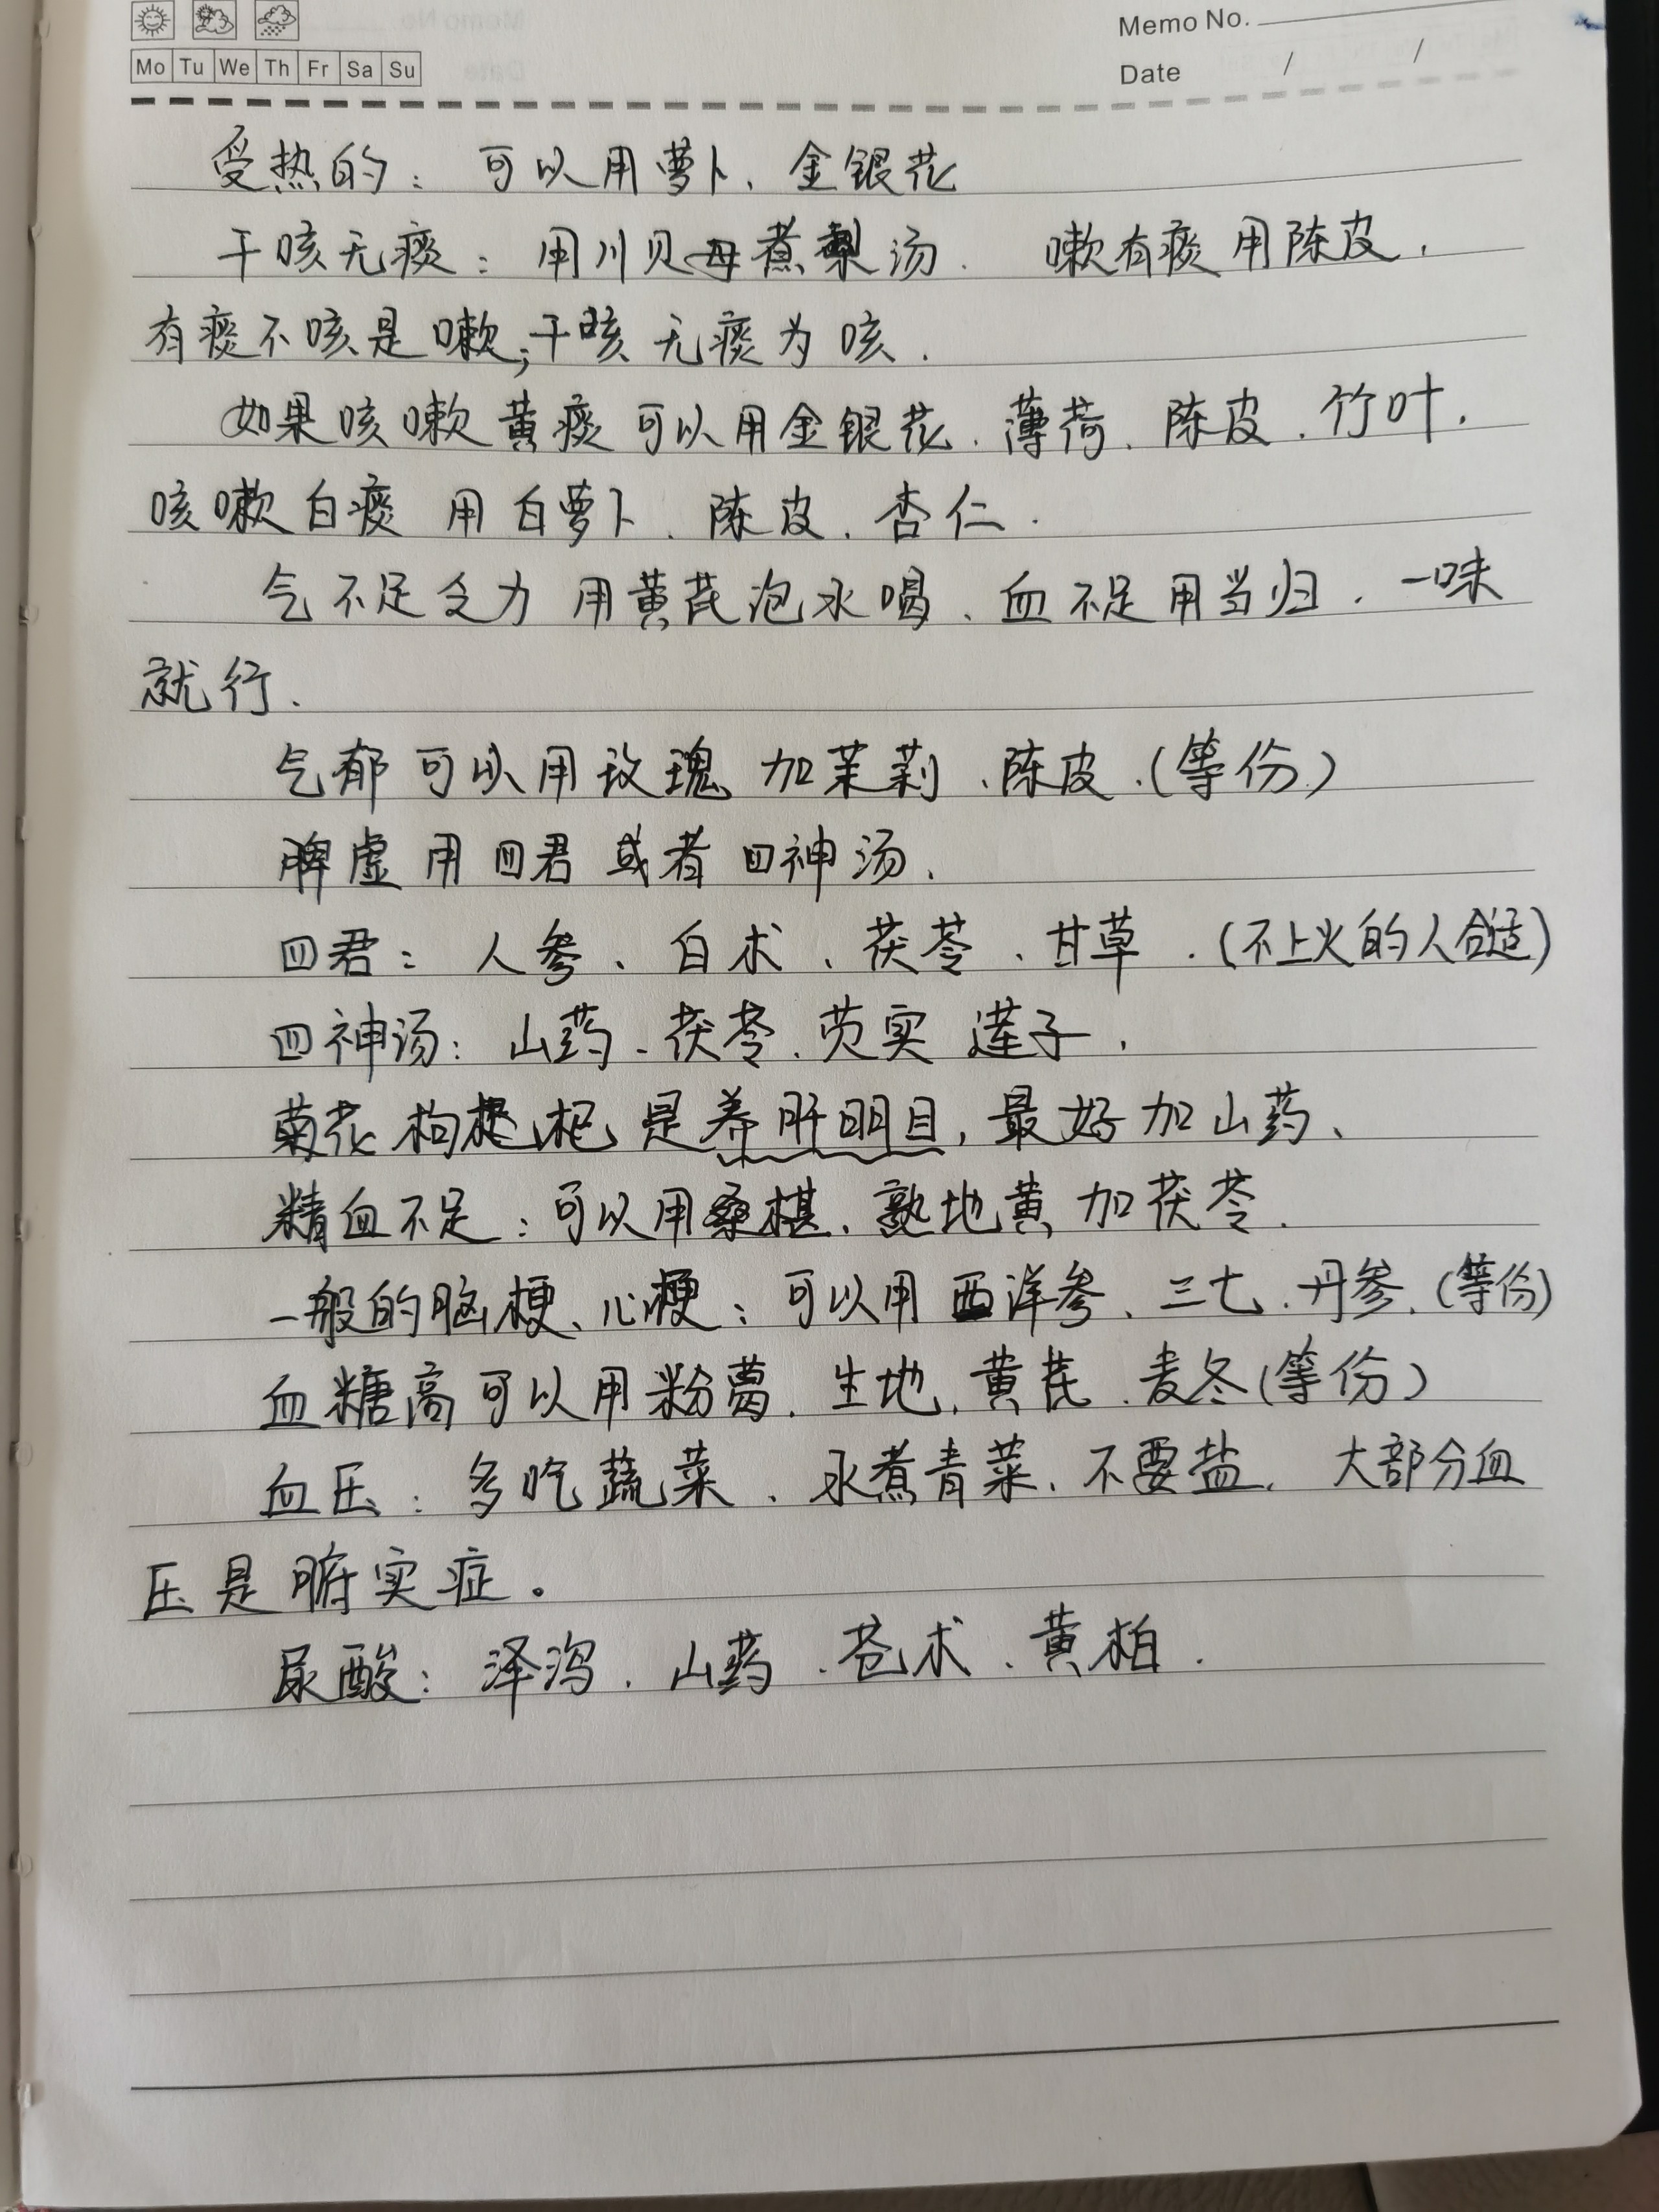 Memo No.
Mo Tu We Th Fr Sa Su
Date / /
受热的：可以用萝卜、金银花
干咳无痰：用川贝母煮梨汤． 嗽有痰用陈皮，
有痰不咳是嗽；干咳无痰为咳．
如果咳嗽黄痰可以用金银花、薄荷、陈皮．竹叶．
咳嗽白痰 用白萝卜、陈皮．杏仁．
气不足乏力 用黄芪泡水喝、血不足用当归．一味
就行．
气郁可以用玫瑰 加茉莉、陈皮．(等份)
脾虚用四君或者四神汤．
四君：人参、白术、茯苓、甘草．(不上火的人合适)
四神汤：山药、茯苓、芡实 莲子，
菊花枸杞是养肝明目，最好加山药、
精血不足：可以用桑椹、熟地黄加茯苓．
一般的脑梗、心梗：可以用西洋参、三七．丹参．(等份)
血糖高可以用粉葛．生地，黄芪．麦冬(等份)
血压：多吃蔬菜、水煮青菜、不要盐． 大部分血
压是脏实症。
尿酸：泽泻．山药．苍术、黄柏．